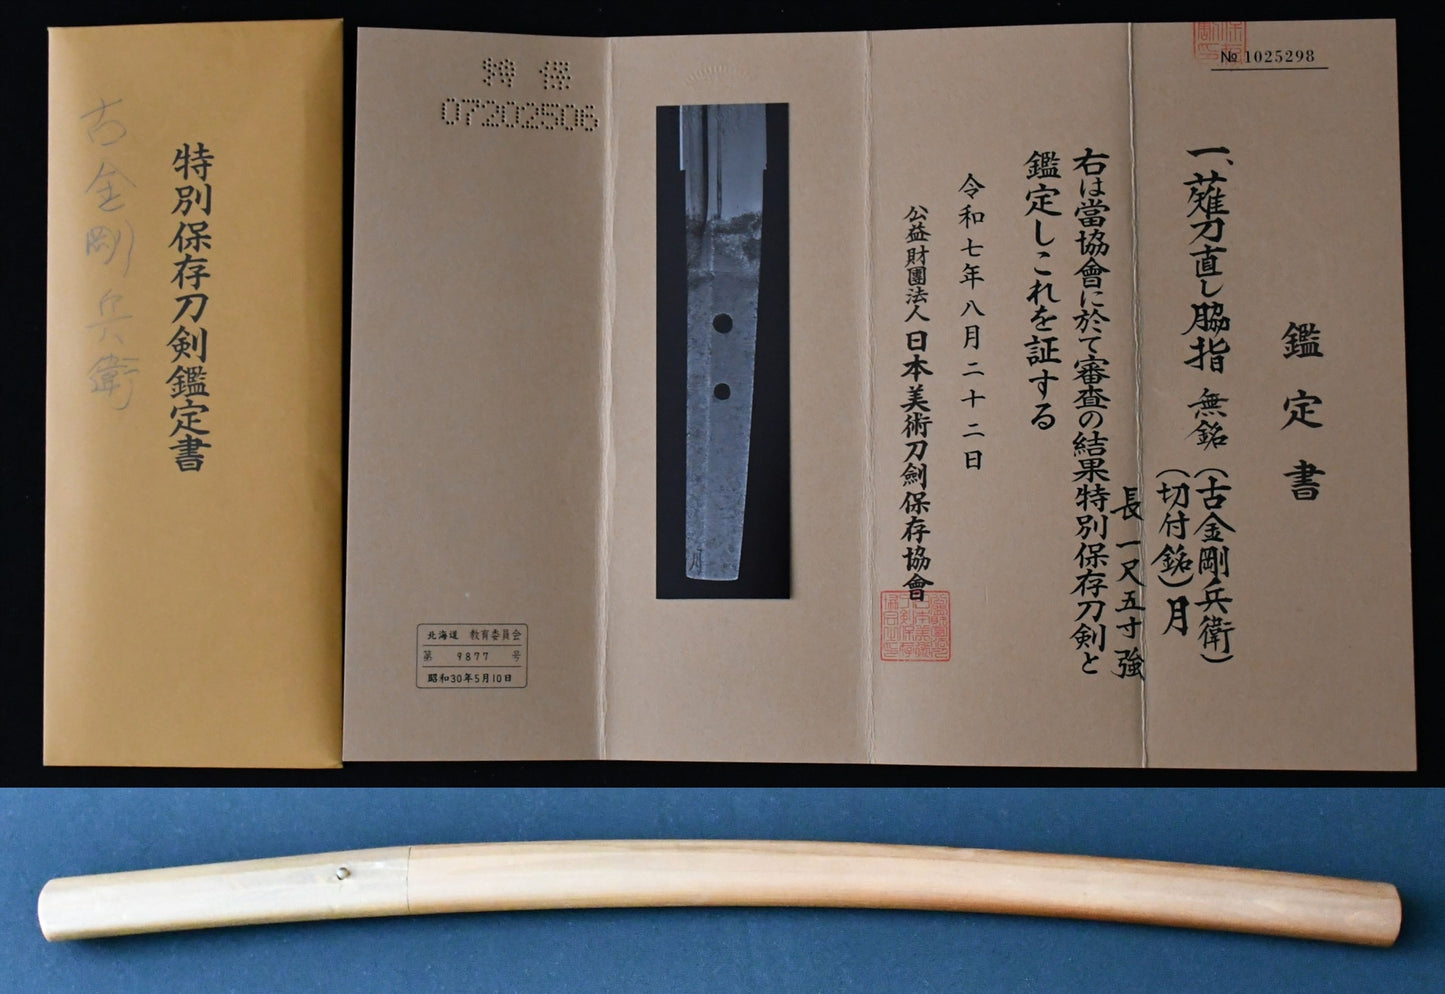 特別保存刀剣鑑定書
古金剛兵衛
鑑定書
№ 1025298
一、薙刀直し脇指 無銘(古金剛兵衛)
(切付銘)月
長一尺五寸強
右は當協會に於て審査の結果特別保存刀剣と
鑑定しこれを証する
令和七年八月二十二日
公益財團法人日本美術刀劍保存協會
月
特保
07202506
北海道 教育委員会
第 9877 号
昭和30年5月10日